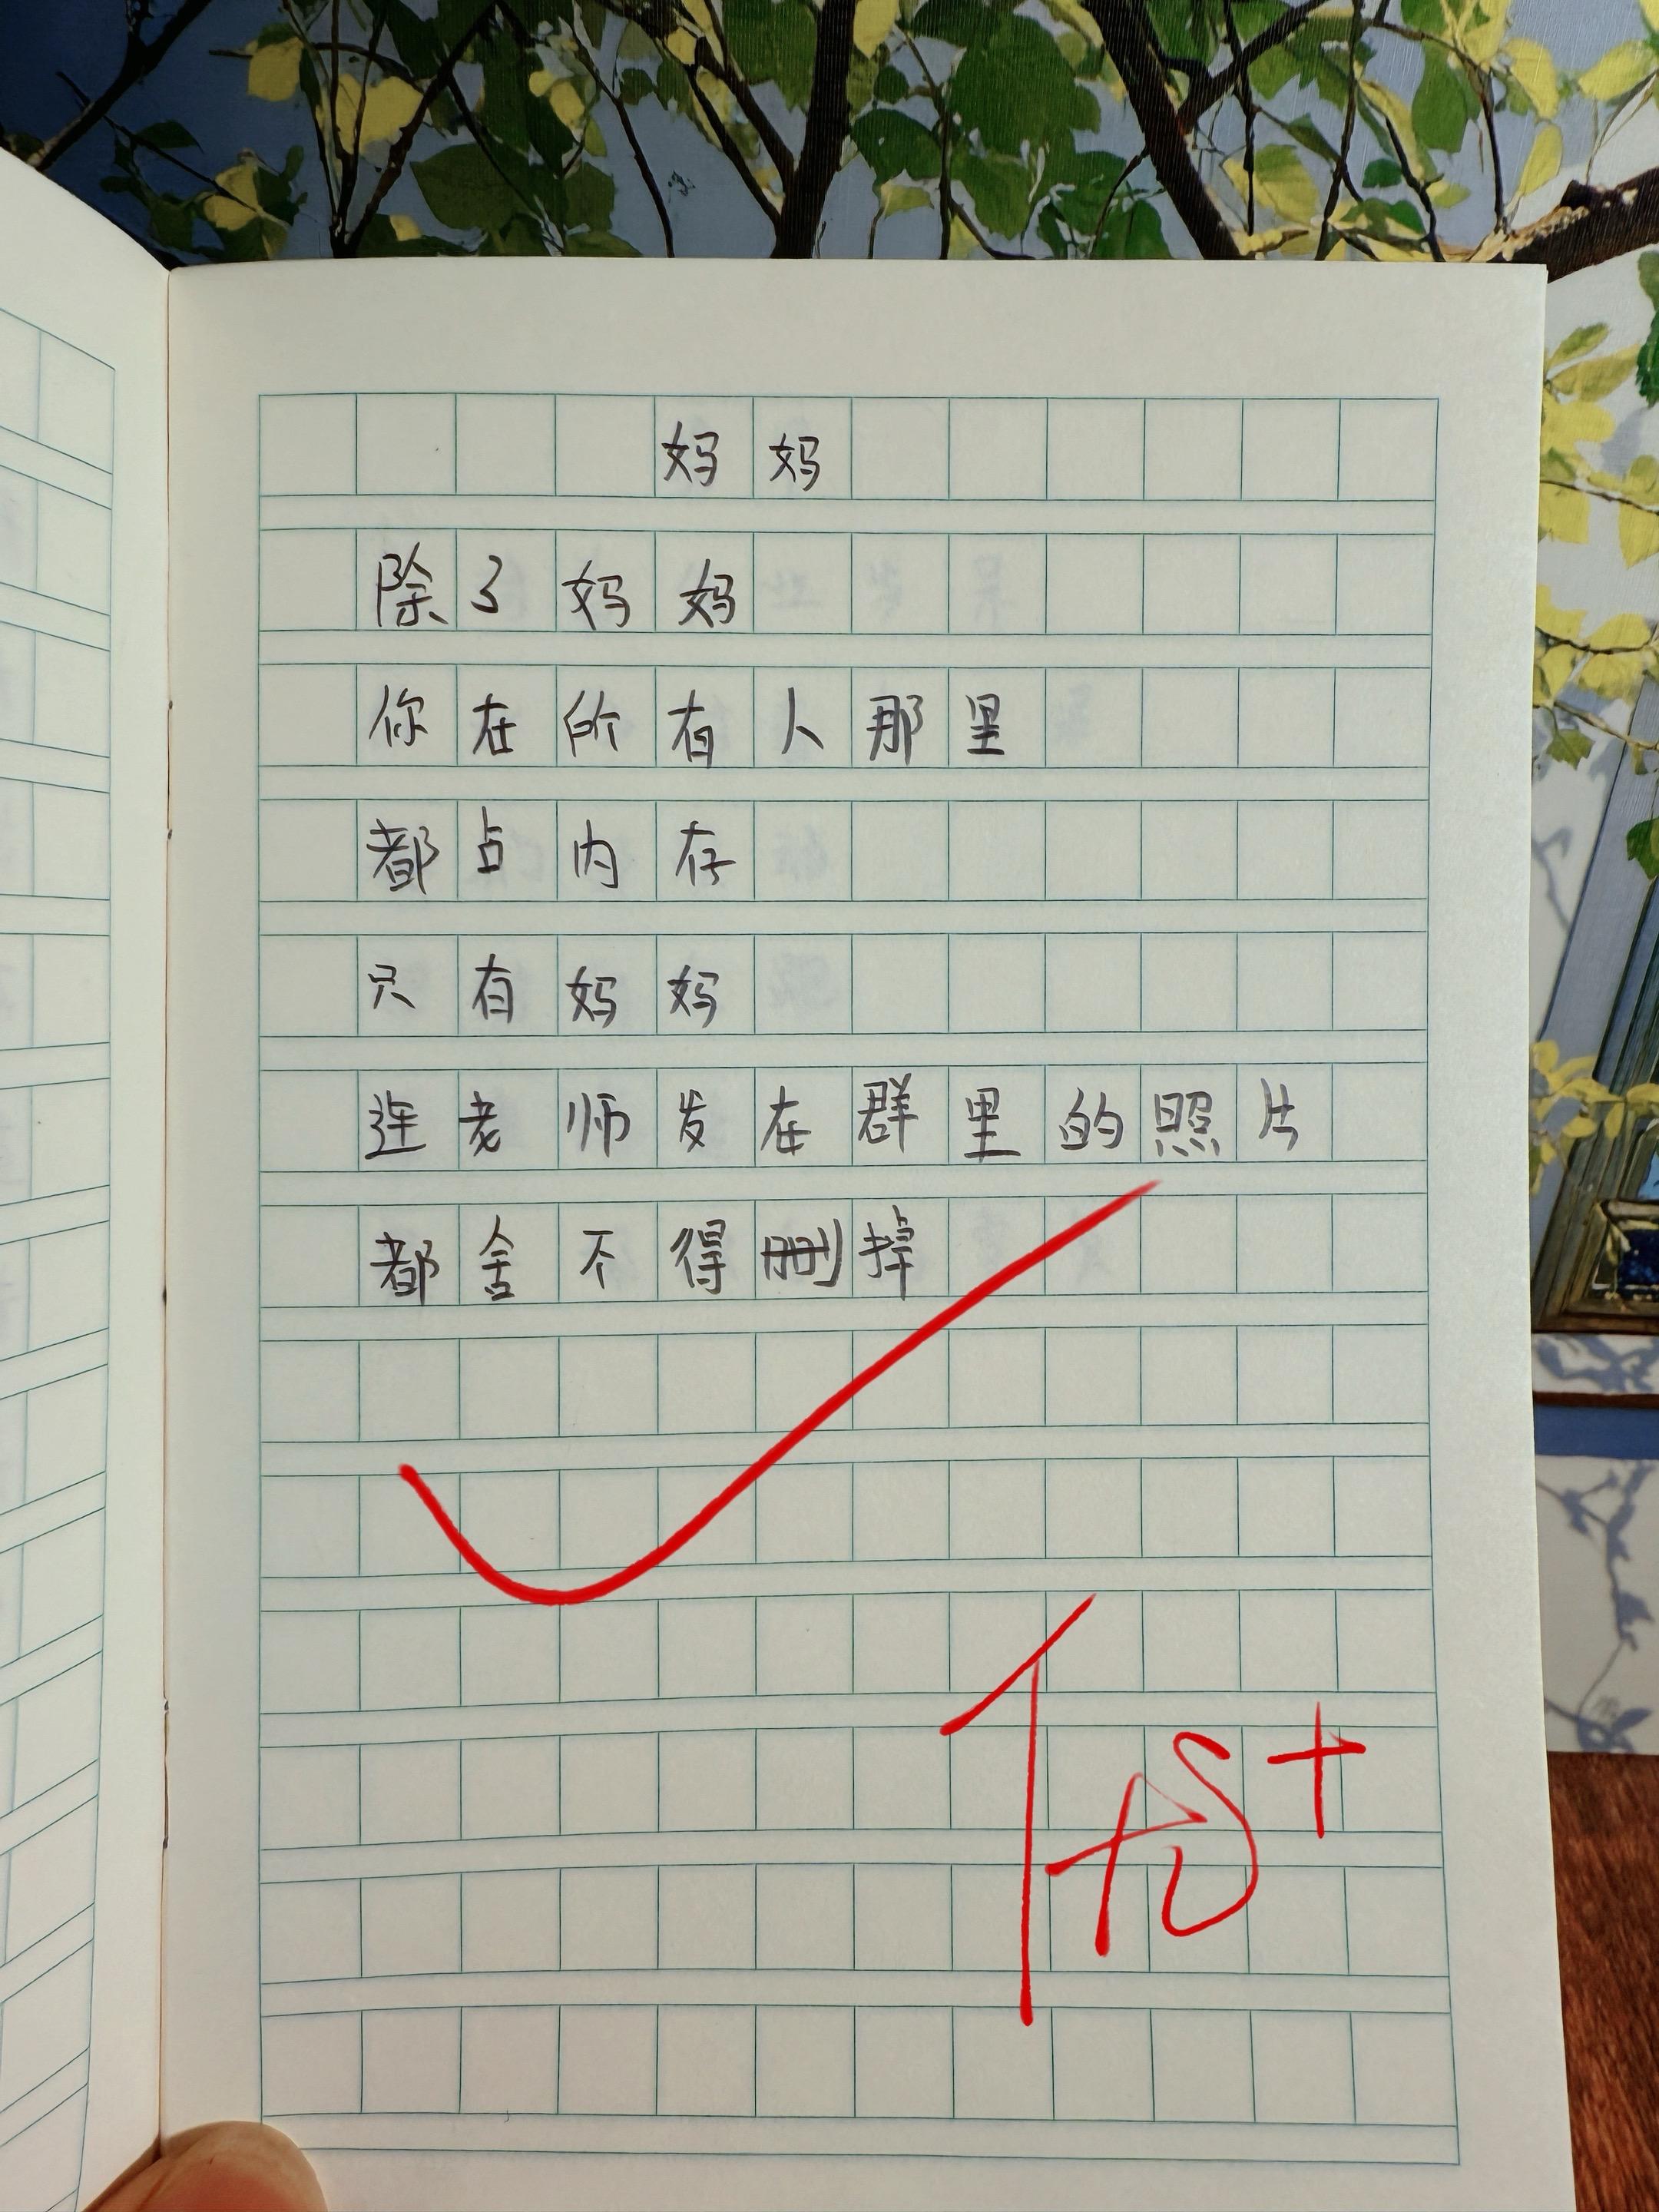 妈妈
除了妈妈
你在所有人那里
都占内存
只有妈妈
连老师发在群里的照片
都舍不得删掉
优+